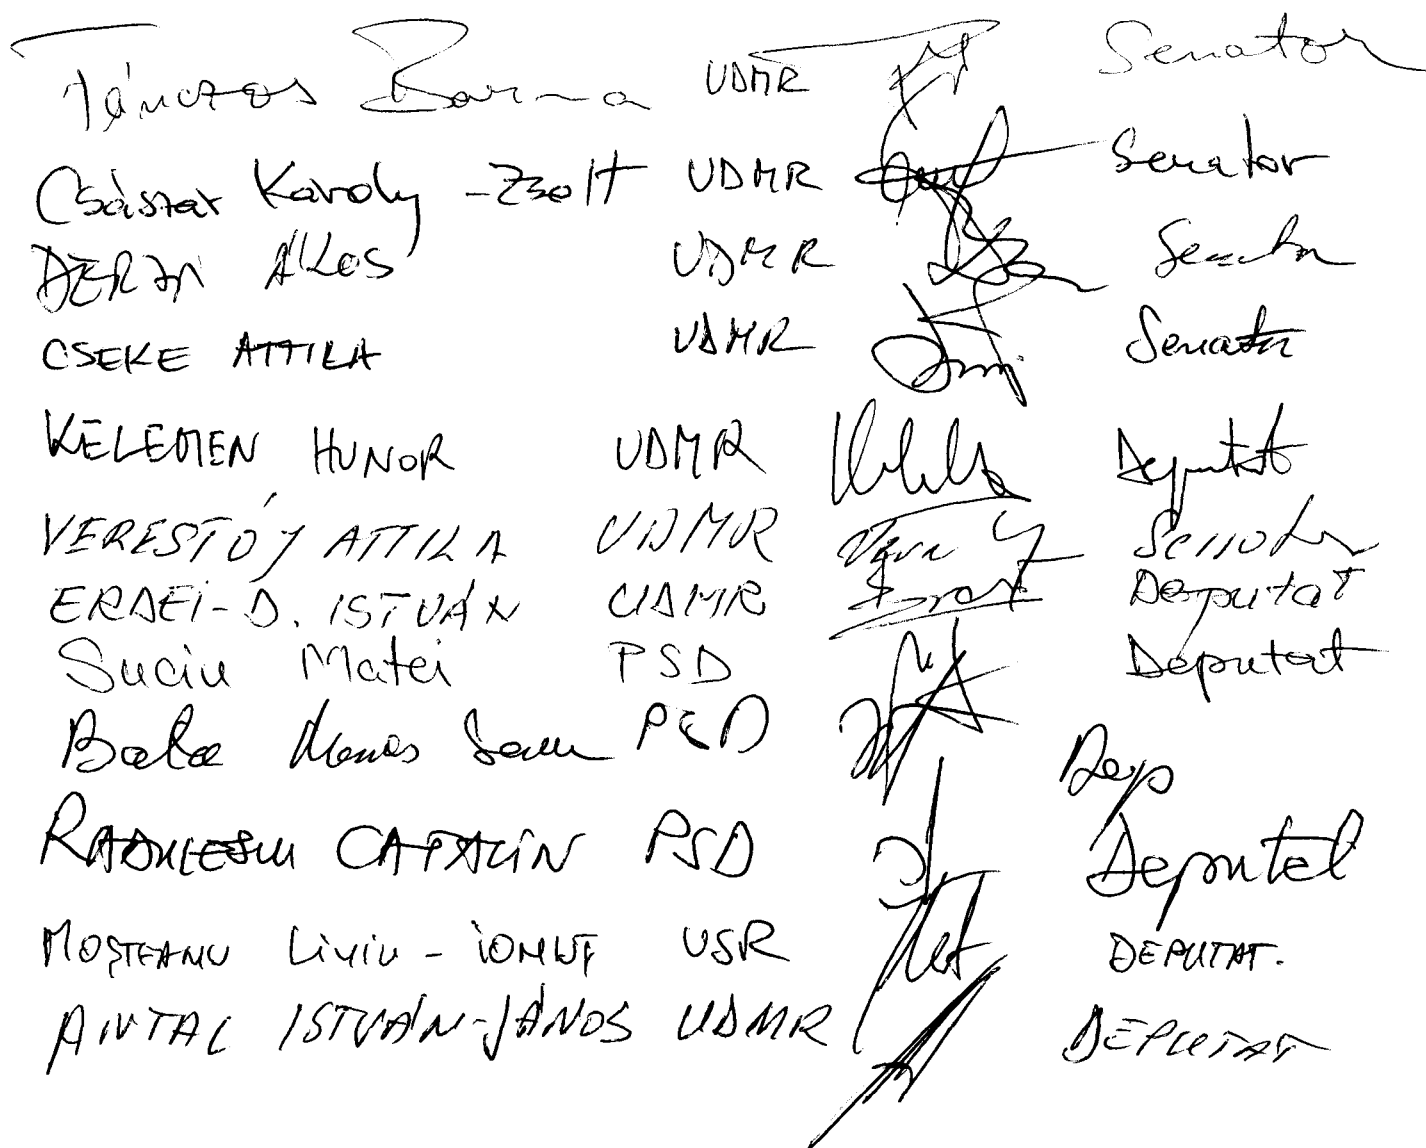 Tánczos Barna UDMR Senator
Császar Karoly - Zsolt UDMR Senator
DERZSI ÁKOS UDMR Senator
CSEKE ATTILA UDMR Senator
KELEMEN HUNOR UDMR Deputat
VERESTÓY ATTILA UDMR Senator
ERDEI-D. ISTVÁN UDMR Deputat
Suciu Matei PSD Deputat
PSD Dep
RADULESCU CATALIN PSD Deputat
MOȘTEANU Liviu - IONUȚ USR DEPUTAT.
ANTAL ISTVÁN-JÁNOS UDMR DEPUTAT